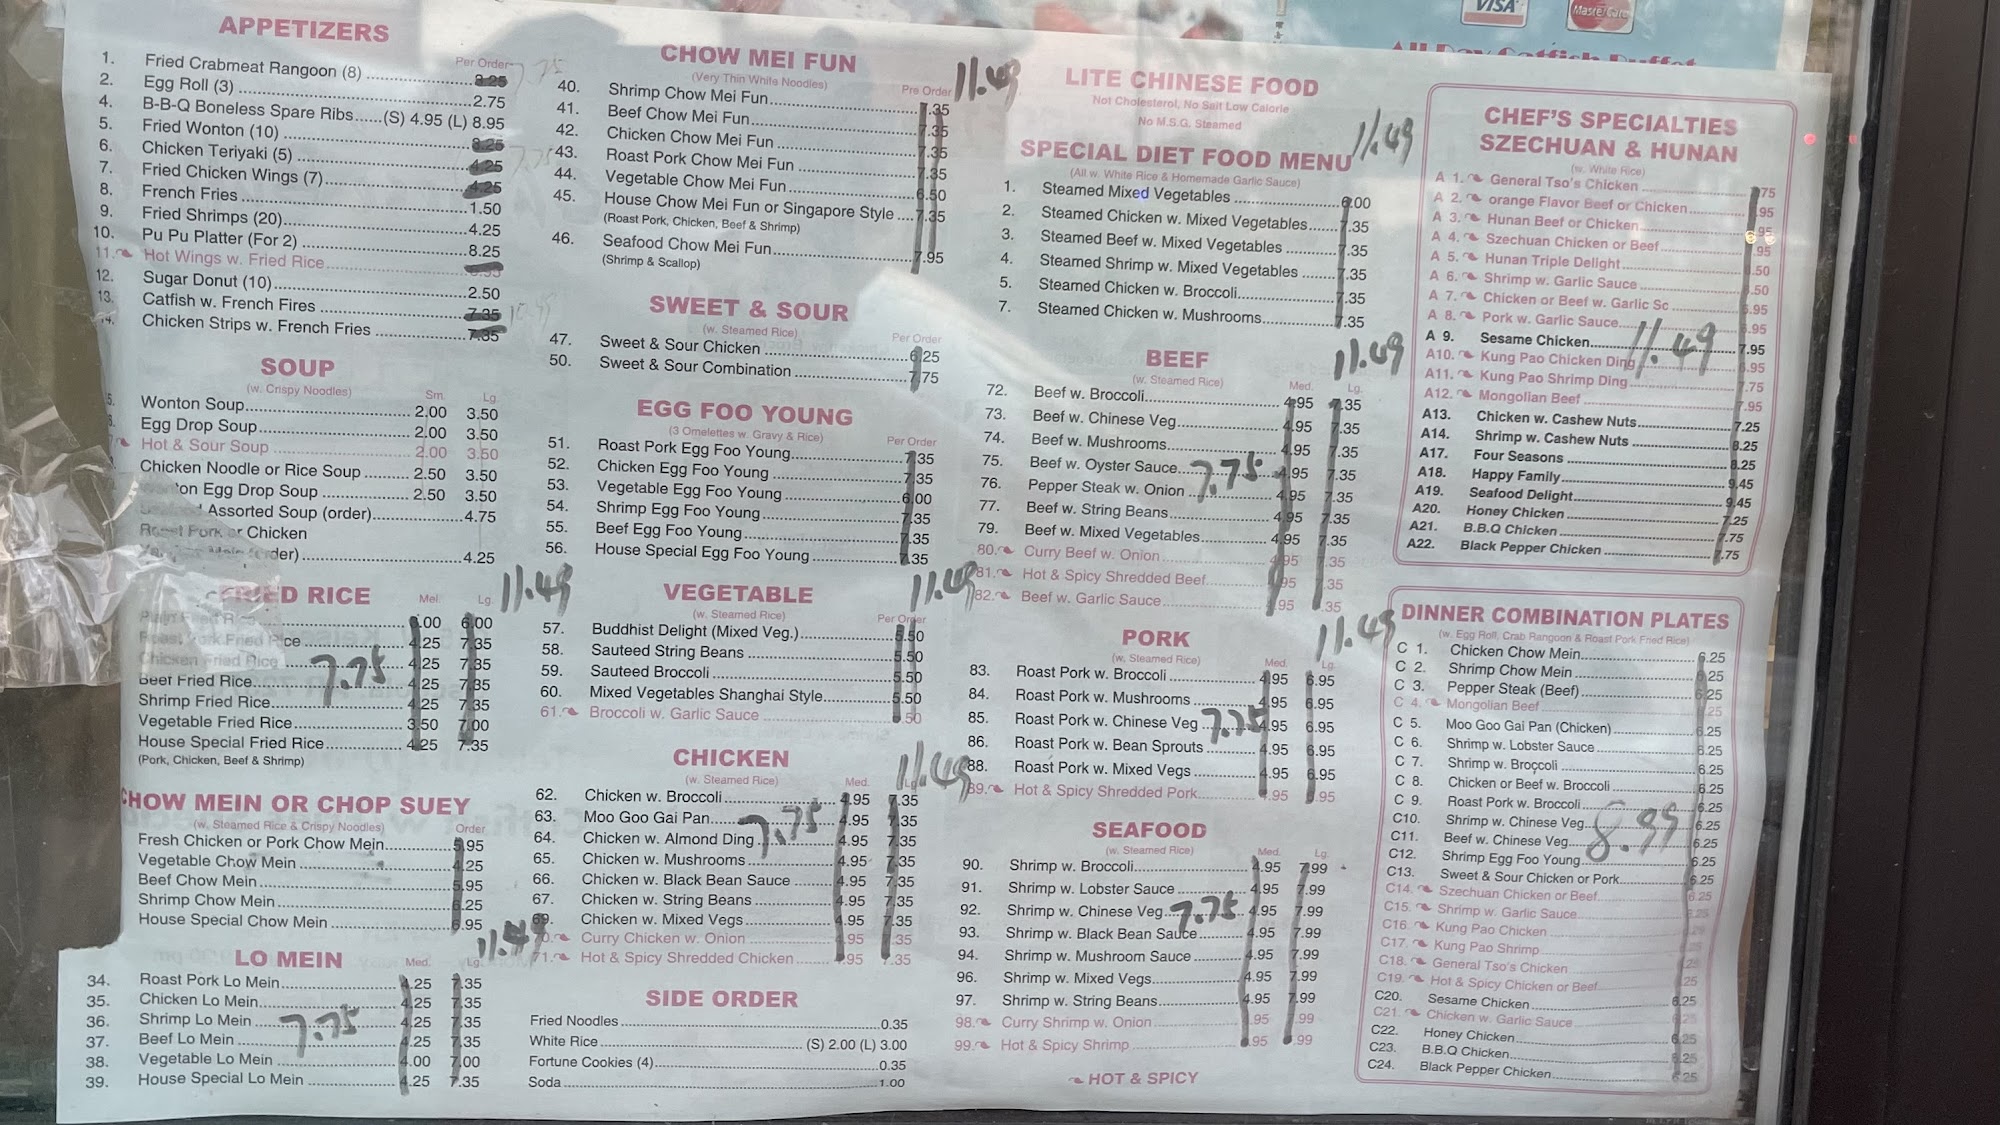 VISA
MasterCard
APPETIZERS
Per Order
1. Fried Crabmeat Rangoon (8) 3.25
2. Egg Roll (3) 2.75
4. B-B-Q Boneless Spare Ribs......(S) 4.95 (L) 8.95
5. Fried Wonton (10)
6. Chicken Teriyaki (5) 4.25
7. Fried Chicken Wings (7) 4.25
8. French Fries 1.50
9. Fried Shrimps (20) 4.25
10. Pu Pu Platter (For 2) 8.25
11. Hot Wings w. Fried Rice
12. Sugar Donut (10) 2.50
13. Catfish w. French Fires 7.35
Chicken Strips w. French Fries 7.35
SOUP
(w. Crispy Noodles) Sm. Lg.
Wonton Soup 2.00 3.50
Egg Drop Soup 2.00 3.50
Hot & Sour Soup 2.00 3.50
Chicken Noodle or Rice Soup 2.50 3.50
Egg Drop Soup 2.50 3.50
Assorted Soup (order) 4.75
Roast Pork or Chicken
4.25
FRIED RICE Lg. 11.49
6.00
Fried Rice 4.25 7.35
Chicken Fried Rice 4.25 7.35
7.75
Beef Fried Rice 4.25 7.35
Shrimp Fried Rice 4.25 7.35
Vegetable Fried Rice 3.50 7.00
House Special Fried Rice 4.25 7.35
(Pork, Chicken, Beef & Shrimp)
CHOW MEIN OR CHOP SUEY
(w. Steamed Rice & Crispy Noodles) Order
Fresh Chicken or Pork Chow Mein 5.95
Vegetable Chow Mein 4.25
Beef Chow Mein 5.95
Shrimp Chow Mein 6.25
House Special Chow Mein 6.95
LO MEIN Med. Lg. 11.49
34. Roast Pork Lo Mein 4.25 7.35
35. Chicken Lo Mein 4.25 7.35
36. Shrimp Lo Mein 7.75 4.25 7.35
37. Beef Lo Mein 4.25 7.35
38. Vegetable Lo Mein 4.00 7.00
39. House Special Lo Mein 4.25 7.35
CHOW MEI FUN
(Very Thin White Noodles) Pre Order 11.49
40. Shrimp Chow Mei Fun 7.35
41. Beef Chow Mei Fun 7.35
42. Chicken Chow Mei Fun 7.35
43. Roast Pork Chow Mei Fun 7.35
44. Vegetable Chow Mei Fun 6.50
45. House Chow Mei Fun or Singapore Style 7.35
(Roast Pork, Chicken, Beef & Shrimp)
46. Seafood Chow Mei Fun 7.95
(Shrimp & Scallop)
SWEET & SOUR
(w. Steamed Rice) Per Order
47. Sweet & Sour Chicken 6.25
50. Sweet & Sour Combination 7.75
EGG FOO YOUNG
(3 Omelettes w. Gravy & Rice) Per Order
51. Roast Pork Egg Foo Young 7.35
52. Chicken Egg Foo Young 7.35
53. Vegetable Egg Foo Young 6.00
54. Shrimp Egg Foo Young 7.35
55. Beef Egg Foo Young 7.35
56. House Special Egg Foo Young 7.35
VEGETABLE 11.49
(w. Steamed Rice) Per Order
57. Buddhist Delight (Mixed Veg.) 5.50
58. Sauteed String Beans 5.50
59. Sauteed Broccoli 5.50
60. Mixed Vegetables Shanghai Style 5.50
61. Broccoli w. Garlic Sauce .50
CHICKEN 11.49
(w. Steamed Rice) Med. Lg.
62. Chicken w. Broccoli 4.95 7.35
63. Moo Goo Gai Pan 7.75 4.95 7.35
64. Chicken w. Almond Ding 4.95 7.35
65. Chicken w. Mushrooms 4.95 7.35
66. Chicken w. Black Bean Sauce 4.95 7.35
67. Chicken w. String Beans 4.95 7.35
69. Chicken w. Mixed Vegs 4.95 7.35
Curry Chicken w. Onion .95 .35
71. Hot & Spicy Shredded Chicken .95 7.35
SIDE ORDER
Fried Noodles 0.35
White Rice (S) 2.00 (L) 3.00
Fortune Cookies (4) 0.35
Soda 1.00
LITE CHINESE FOOD
Not Cholesterol, No Salt Low Calorie
No M.S.G. Steamed
11.49
SPECIAL DIET FOOD MENU
(All w. White Rice & Homemade Garlic Sauce)
1. Steamed Mixed Vegetables 6.00
2. Steamed Chicken w. Mixed Vegetables 7.35
3. Steamed Beef w. Mixed Vegetables 7.35
4. Steamed Shrimp w. Mixed Vegetables 7.35
5. Steamed Chicken w. Broccoli 7.35
7. Steamed Chicken w. Mushrooms 7.35
BEEF 11.49
(w. Steamed Rice) Med. Lg.
72. Beef w. Broccoli 4.95 7.35
73. Beef w. Chinese Veg 4.95 7.35
74. Beef w. Mushrooms 4.95 7.35
75. Beef w. Oyster Sauce 7.75 4.95 7.35
76. Pepper Steak w. Onion 4.95 7.35
77. Beef w. String Beans 4.95 7.35
79. Beef w. Mixed Vegetables 4.95 7.35
80. Curry Beef w. Onion .95 7.35
81. Hot & Spicy Shredded Beef .95 .35
82. Beef w. Garlic Sauce .95 .35
PORK 11.49
(w. Steamed Rice) Med. Lg.
83. Roast Pork w. Broccoli 4.95 6.95
84. Roast Pork w. Mushrooms 4.95 6.95
85. Roast Pork w. Chinese Veg 7.75 4.95 6.95
86. Roast Pork w. Bean Sprouts 4.95 6.95
88. Roast Pork w. Mixed Vegs 4.95 6.95
89. Hot & Spicy Shredded Pork .95 6.95
SEAFOOD
(w. Steamed Rice) Med. Lg.
90. Shrimp w. Broccoli 4.95 7.99
91. Shrimp w. Lobster Sauce 4.95 7.99
92. Shrimp w. Chinese Veg 7.75 4.95 7.99
93. Shrimp w. Black Bean Sauce 4.95 7.99
94. Shrimp w. Mushroom Sauce 4.95 7.99
96. Shrimp w. Mixed Vegs 4.95 7.99
97. Shrimp w. String Beans 4.95 7.99
98. Curry Shrimp w. Onion .95 .99
99. Hot & Spicy Shrimp .95 .99
HOT & SPICY
CHEF'S SPECIALTIES
SZECHUAN & HUNAN
(w. White Rice)
A 1. General Tso's Chicken .75
A 2. orange Flavor Beef or Chicken .95
A 3. Hunan Beef or Chicken .95
A 4. Szechuan Chicken or Beef .95
A 5. Hunan Triple Delight .50
A 6. Shrimp w. Garlic Sauce .50
A 7. Chicken or Beef w. Garlic Sc 6.95
A 8. Pork w. Garlic Sauce 6.95
11.49
A 9. Sesame Chicken 7.95
A10. Kung Pao Chicken Ding 6.95
A11. Kung Pao Shrimp Ding 7.75
A12. Mongolian Beef 7.95
A13. Chicken w. Cashew Nuts 7.25
A14. Shrimp w. Cashew Nuts 8.25
A17. Four Seasons 8.25
A18. Happy Family 9.45
A19. Seafood Delight 9.45
A20. Honey Chicken 7.25
A21. B.B.Q Chicken 7.75
A22. Black Pepper Chicken 7.75
DINNER COMBINATION PLATES
(w. Egg Roll, Crab Rangoon & Roast Pork Fried Rice)
C 1. Chicken Chow Mein 6.25
C 2. Shrimp Chow Mein 6.25
C 3. Pepper Steak (Beef) 6.25
C 4. Mongolian Beef .25
C 5. Moo Goo Gai Pan (Chicken) 6.25
C 6. Shrimp w. Lobster Sauce 6.25
C 7. Shrimp w. Broccoli 6.25
C 8. Chicken or Beef w. Broccoli 6.25
C 9. Roast Pork w. Broccoli 6.25
C10. Shrimp w. Chinese Veg 6.25
8.99
C11. Beef w. Chinese Veg 6.25
C12. Shrimp Egg Foo Young 6.25
C13. Sweet & Sour Chicken or Pork 6.25
C14. Szechuan Chicken or Beef 6.25
C15. Shrimp w. Garlic Sauce 6.25
C16. Kung Pao Chicken
C17. Kung Pao Shrimp
C18. General Tso's Chicken .25
C19. Hot & Spicy Chicken or Beef .25
C20. Sesame Chicken 6.25
C21. Chicken w. Garlic Sauce 6.25
C22. Honey Chicken 6.25
C23. B.B.Q Chicken 6.25
C24. Black Pepper Chicken 6.25